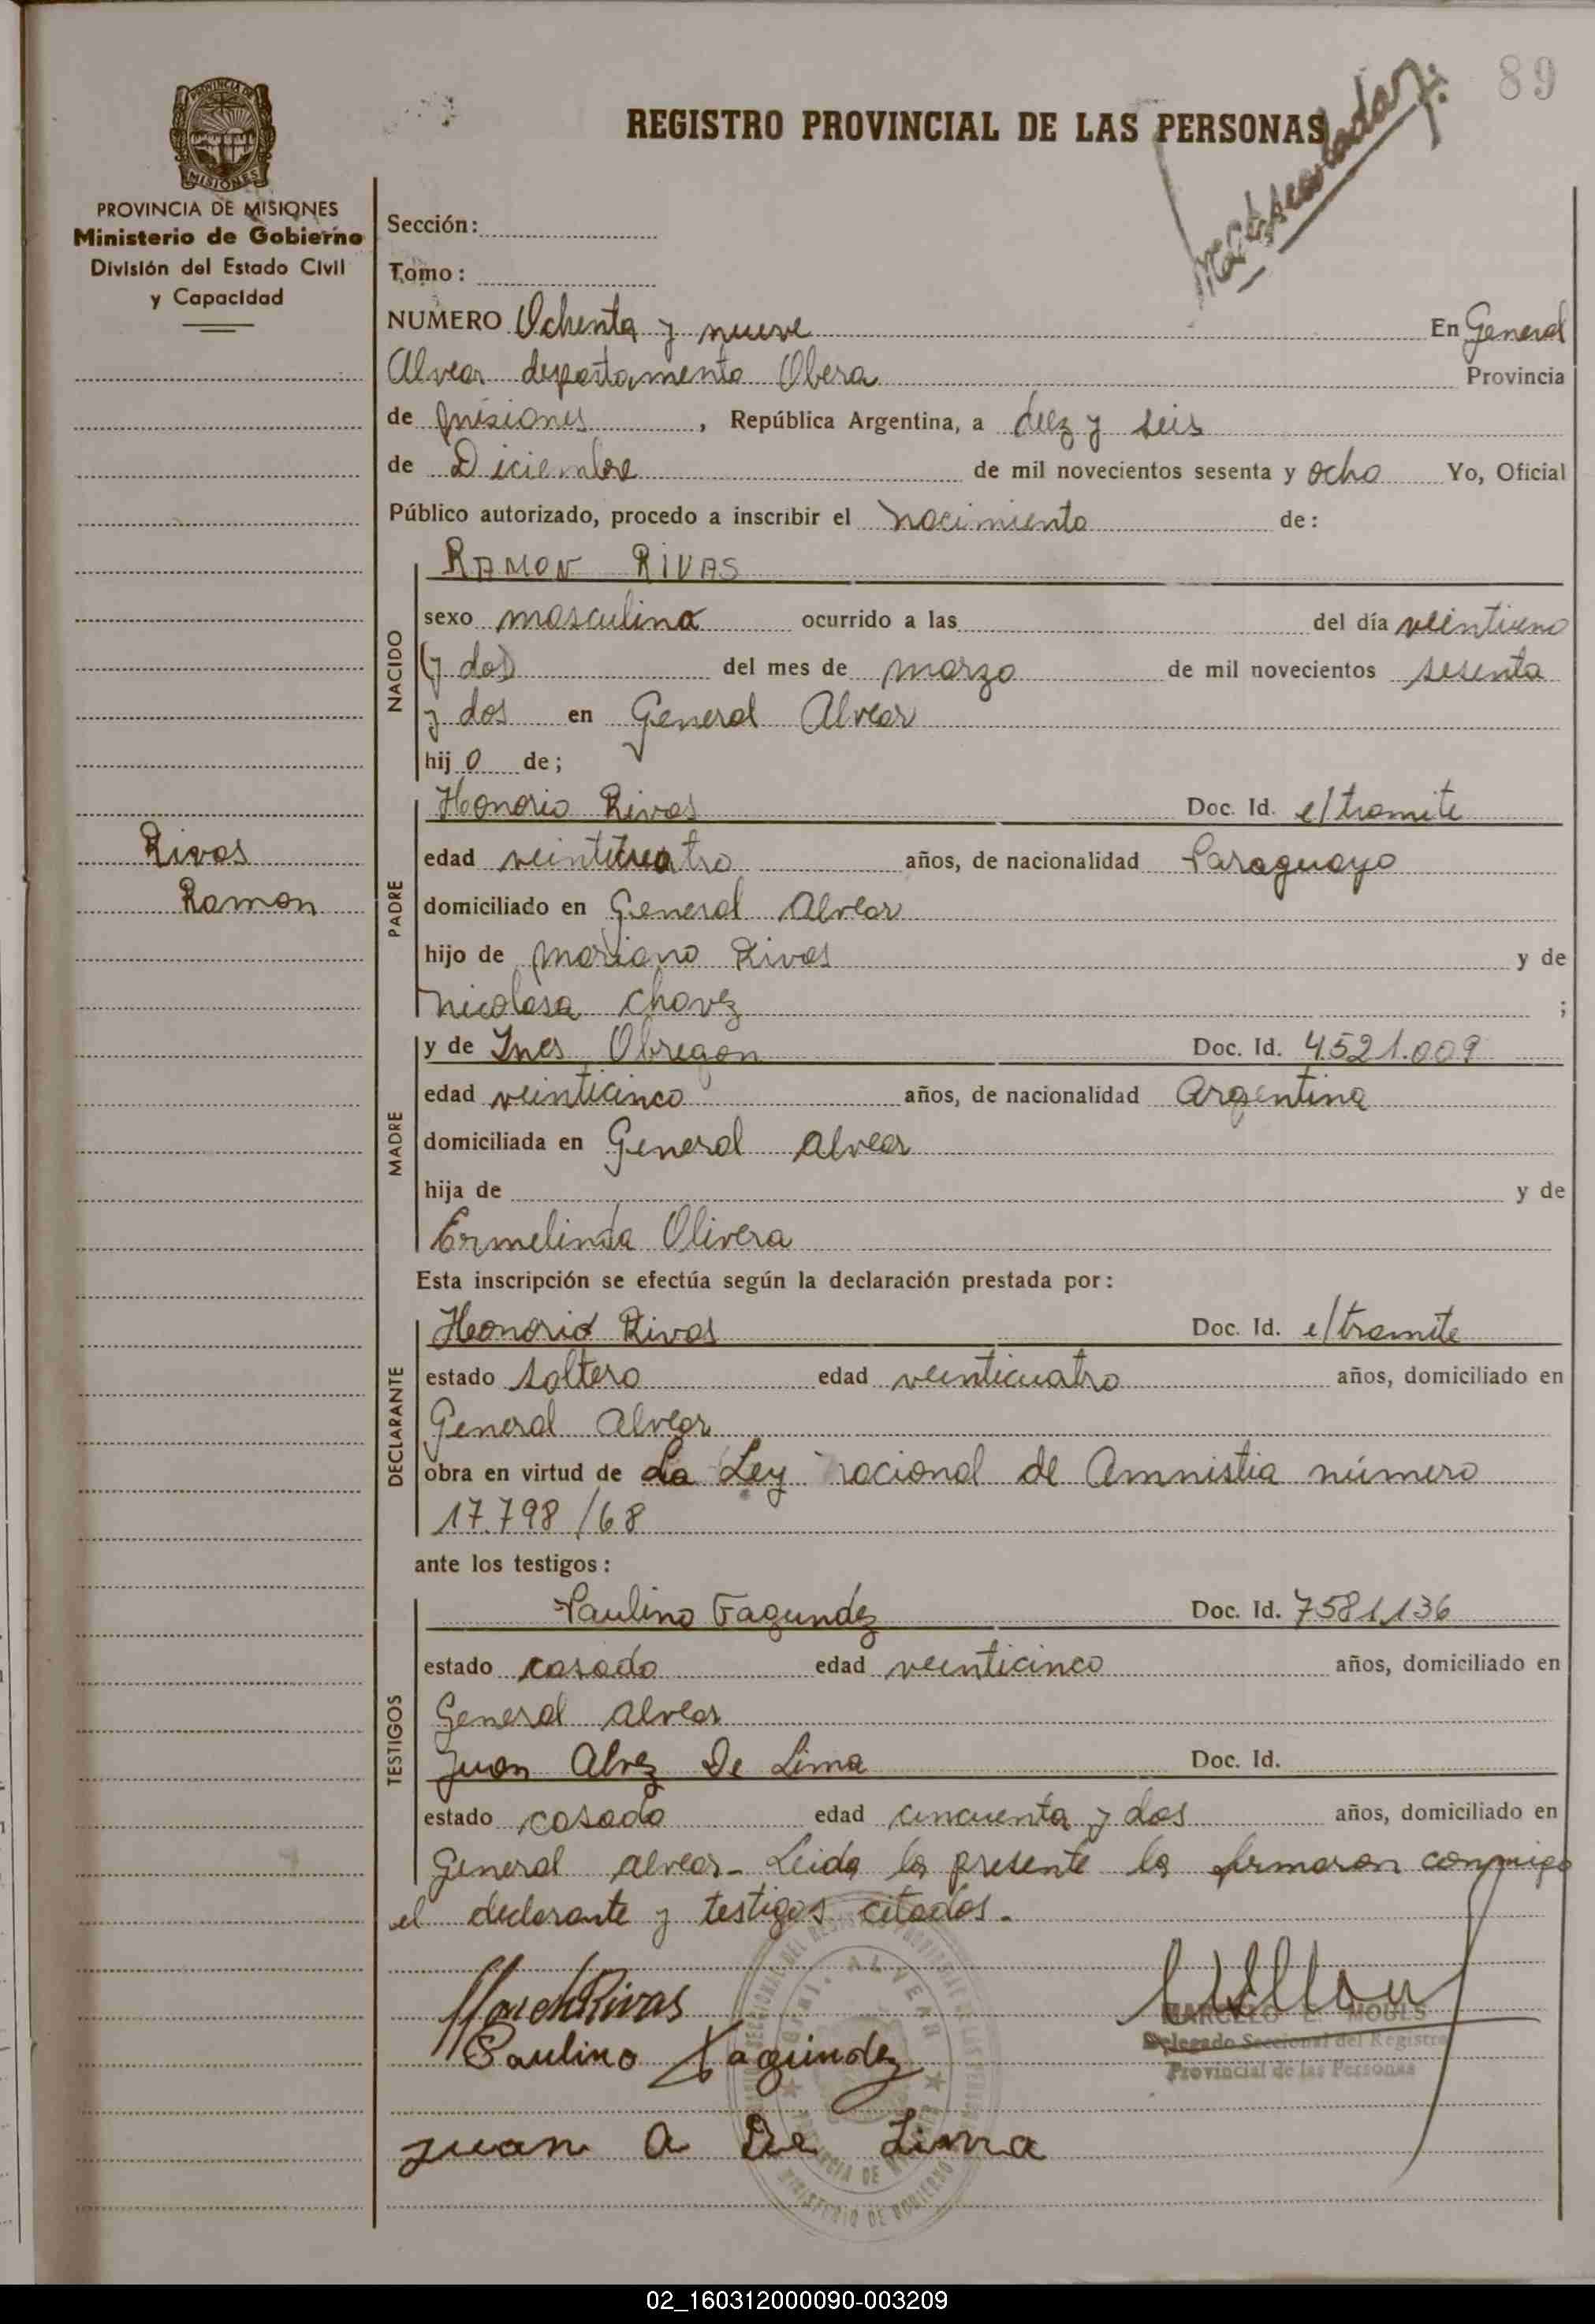 89
REGISTRO PROVINCIAL DE LAS PERSONAS
PROVINCIA DE MISIONES
MISIONES
PROVINCIA DE MISIONES
Ministerio de Gobierno
División del Estado Civil
y Capacidad
Sección:
Tomo:
NUMERO Ochenta y nueve En General
Alvear departamento Obera Provincia
de Misiones, República Argentina, a diez y seis
de Diciembre de mil novecientos sesenta y ocho Yo, Oficial
Público autorizado, procedo a inscribir el nacimiento de:
NACIDO
RAMON RIVAS
sexo masculino ocurrido a las del día veintiuno
(y dos) del mes de marzo de mil novecientos sesenta
y dos en General Alvear
hijo de;
Rivas
Ramon
PADRE
Honorio Rivas Doc. Id. e/tramite
edad veinticuatro años, de nacionalidad Paraguayo
domiciliado en General Alvear
hijo de Mariano Rivas y de
Nicolasa Chavez ;
MADRE
y de Ines Obregon Doc. Id. 4.521.009
edad veinticinco años, de nacionalidad Argentina
domiciliada en General Alvear
hija de y de
Ermelinda Olivera
Esta inscripción se efectúa según la declaración prestada por:
DECLARANTE
Honorio Rivas Doc. Id. e/tramite
estado soltero edad veinticuatro años, domiciliado en
General Alvear
obra en virtud de La Ley nacional de Amnistia número
17.798/68
ante los testigos:
TESTIGOS
Paulino Fagundez Doc. Id. 7581136
estado casado edad veinticinco años, domiciliado en
General Alvear
Juan Alvez De Lima Doc. Id.
estado casado edad cincuenta y dos años, domiciliado en
General Alvear - Leida la presente la firmaron conmigo
el declarante y testigos citados.
Rivas
Paulino Fagundez
Juan A De Lima
MARCELO E. MOULS
Delegado Seccional del Registro
Provincial de las Personas
GRAL. ALVEAR
MINISTERIO DE GOBIERNO
02_160312000090-003209